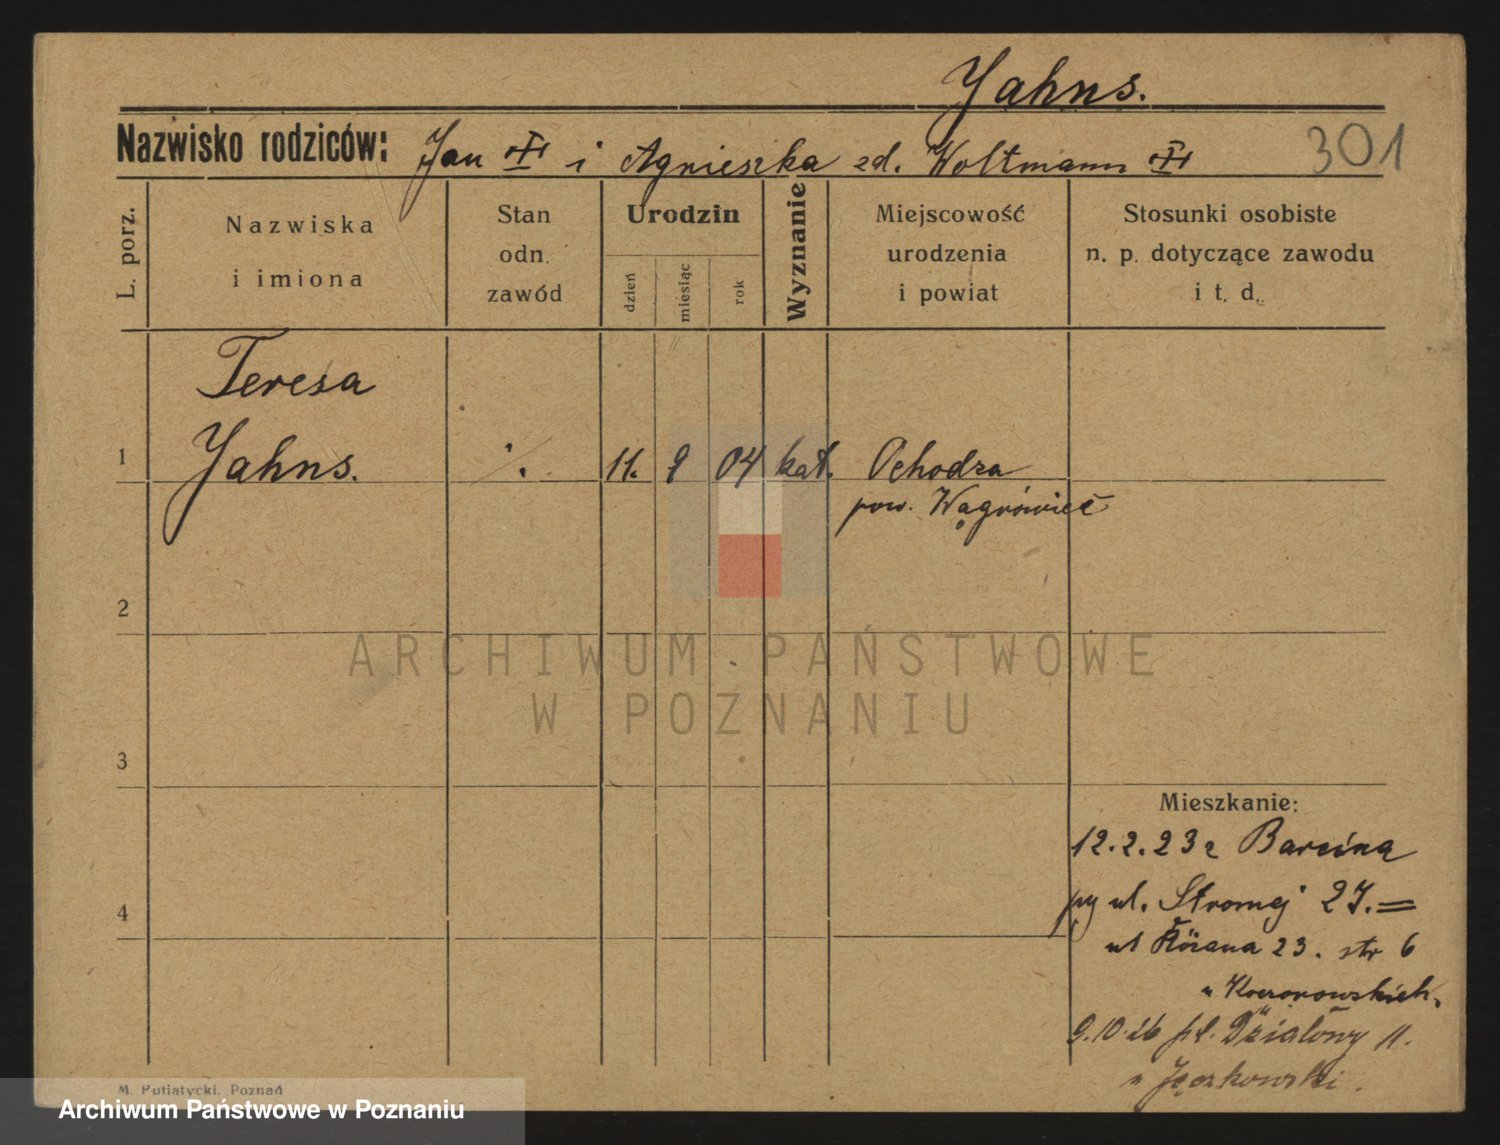 Jahns.
Nazwisko rodziców: Jan i Agnieszka zd. Woltmann
301
L. porz.
Nazwiska
i imiona
Stan
odn.
zawód
Urodzin
dzień
miesiąc
rok
Wyznanie
Miejscowość
urodzenia
i powiat
Stosunki osobiste
n. p. dotyczące zawodu
i t. d.
Teresa
1 Jahns. 11. 9 04 kat. Ochodza
pow. Wągrówiec
2
ARCHIWUM PAŃSTWOWE
W POZNANIU
3
Mieszkanie:
12.2.23 z Barcina
4
py ul. Stromej 27.=
ul Różana 23. str 6
u Koczorowskich.
9.10.26 pl. Działowy 11.
u Jęczkowski.
M. Putiatycki. Poznań
Archiwum Państwowe w Poznaniu